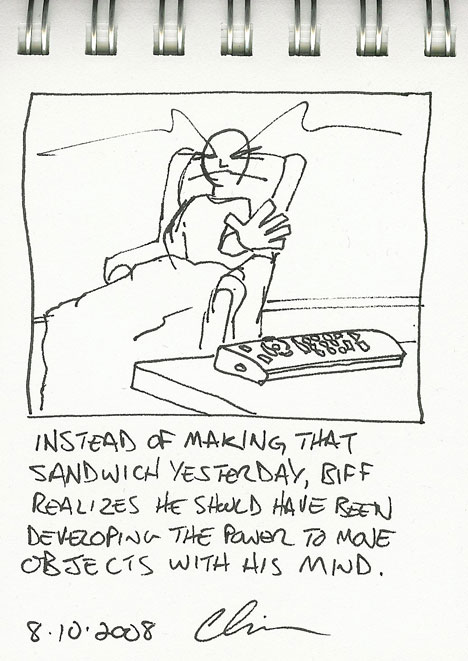 INSTEAD OF MAKING THAT
SANDWICH YESTERDAY, BIFF
REALIZES HE SHOULD HAVE BEEN
DEVELOPING THE POWER TO MOVE
OBJECTS WITH HIS MIND.
8.10.2008